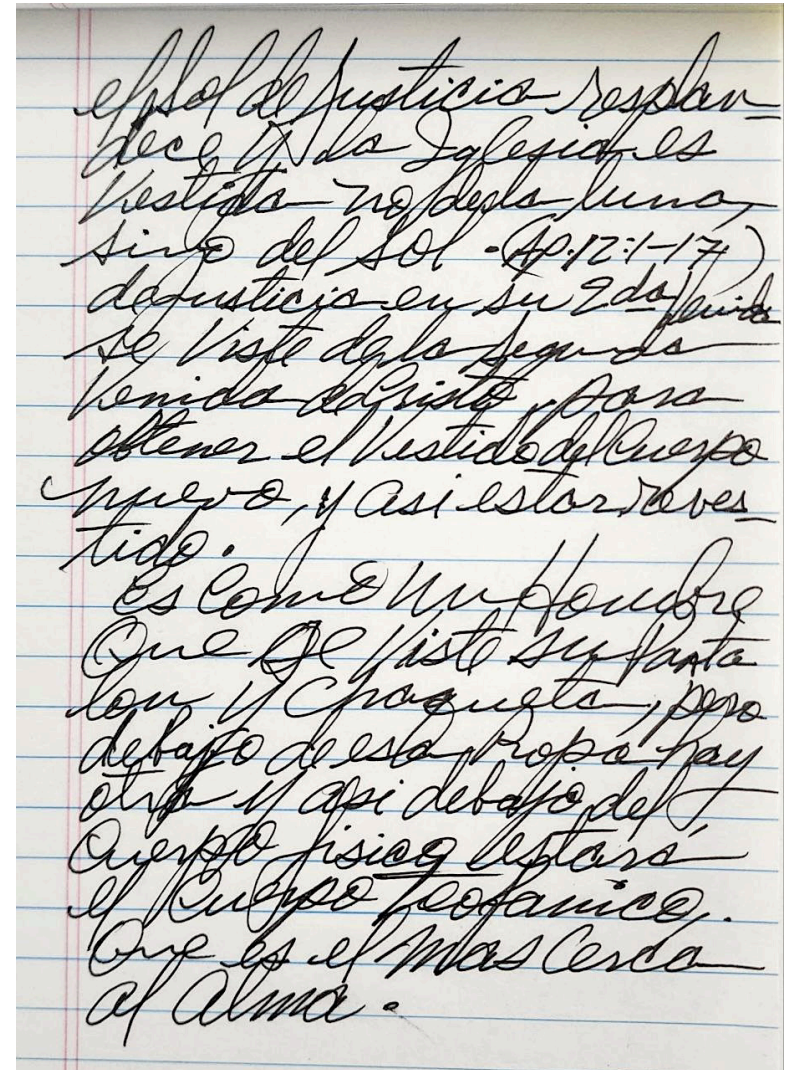 el sol de Justicia resplan-
dece y la Iglesia es
Vestida no de la luna,
sino del sol. (Ap. 12:1-17)
de justicia en su 2da Venida
se Viste de la segunda
Venida de Cristo, para
obtener el Vestido del Cuerpo
nuevo, y asi estar reves-
tido.
Es Como Un Hombre
Que Se Viste su Panta
lon y Chaqueta, pero
debajo de esa ropa hay
otra y asi debajo del
Cuerpo fisico estara
el Cuerpo Teofanico.
Que es el mas Cerca
al Alma.